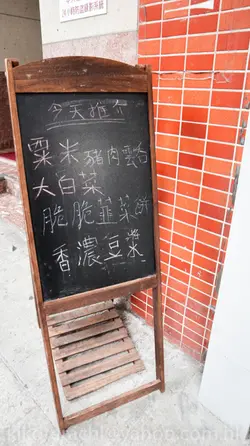 今天推介
粟米豬肉雲吞
大白菜
脆脆韮菜餅
香濃豆漿